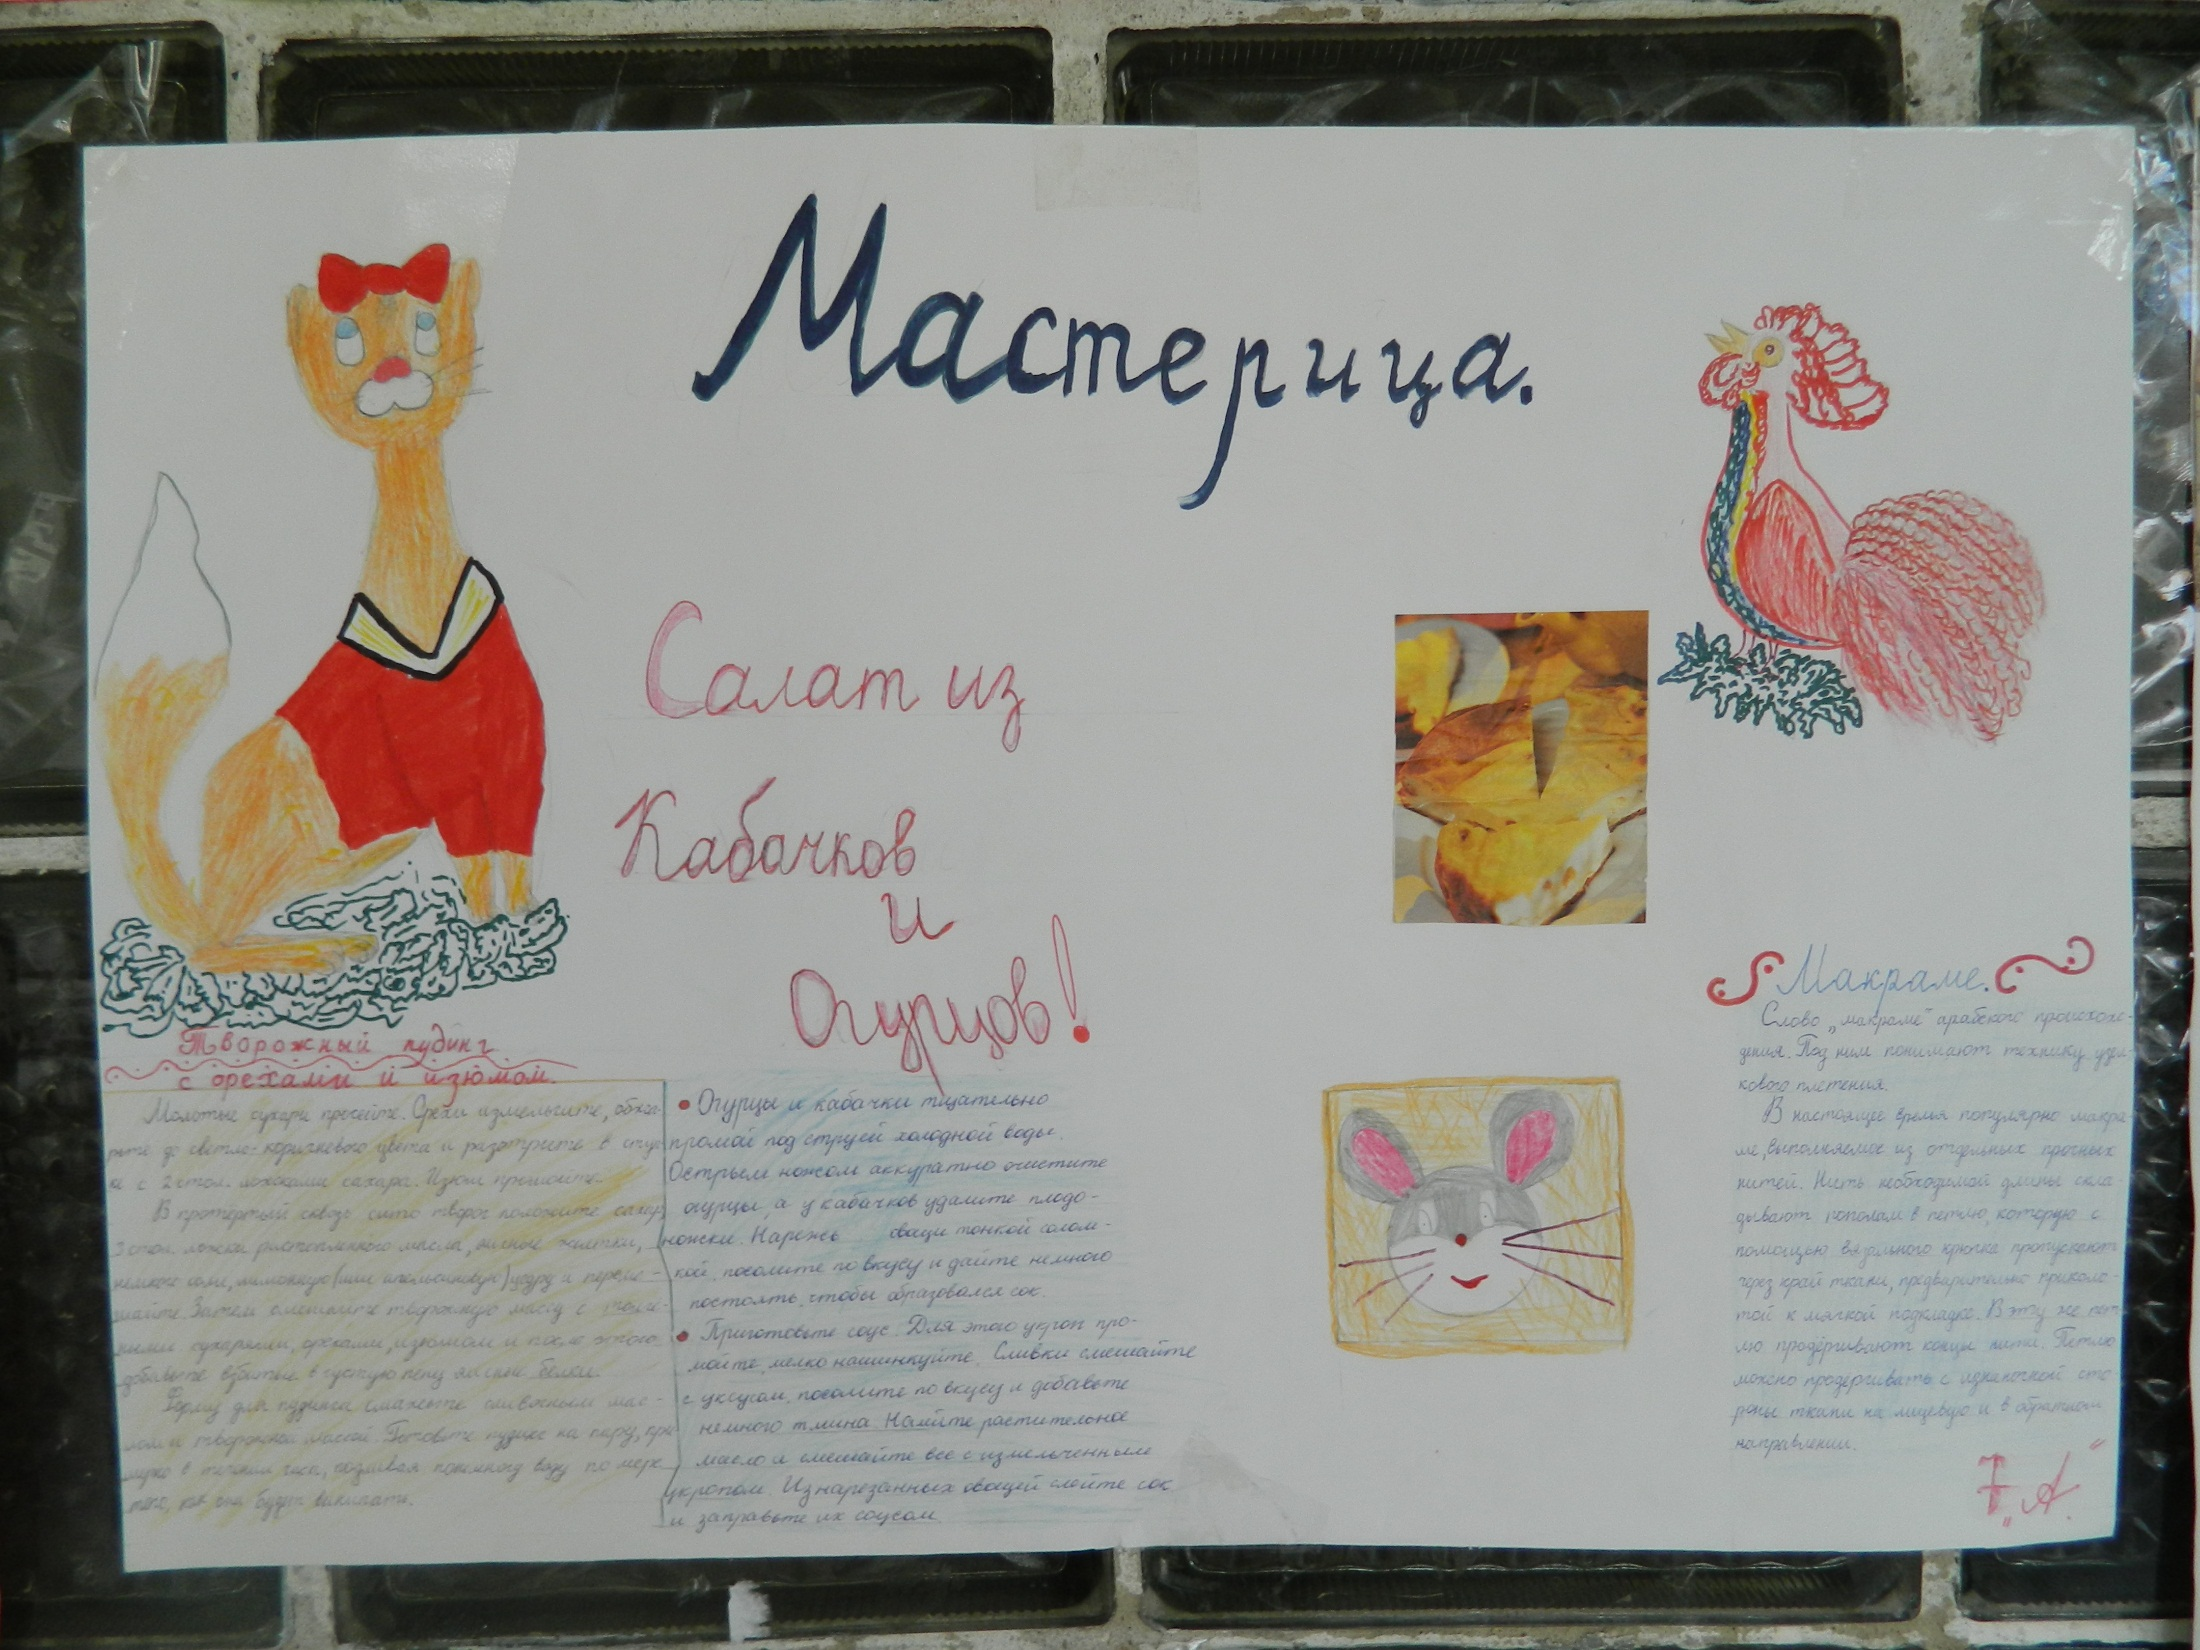 Мастерица.
Салат из
Кабачков
и
Огурцов!
Творожный пудинг
с орехами и изюмом.
Молотые сухари просейте. Орехи измельчите, обжа-
рьте до светло-коричневого цвета и разотрите в ступ-
ке с 2 стол. ложками сахара. Изюм промойте.
В протёртый сквозь сито творог положите сахар,
3 стол. ложки растопленного масла, яичные желтки,
немного соли, лимонную (или апельсиновую) цедру и переме-
шайте. Затем смешайте творожную массу с
сухарями, орехами, изюмом и после этого
добавьте взбитые в густую пену яичные белки.
Форму для пудинга смажьте сливочным мас-
лом и творожной массой. Готовьте пудинг на пару,
в течении часа, подливая понемногу воду по мере
того, как она будет выкипать.
• Огурцы и кабачки тщательно
промой под струей холодной воды.
Острым ножом аккуратно очистите
огурцы, а у кабачков удалите плодо-
ножки. Нарежь овощи тонкой солом-
кой, посолите по вкусу и дайте немного
постоять, чтобы образовался сок.
• Приготовьте соус. Для этого укроп про-
мойте, мелко нашинкуйте. Сливки смешайте
с уксусом, посолите по вкусу и добавьте
немного тмина. Налейте растительное
масло и смешайте все с измельченным
укропом. Из нарезанных овощей слейте сок
и заправьте их соусом
Макраме.
Слово „макраме" арабского происхож-
дения. Под ним понимают технику узел-
кового плетения.
В настоящее время популярно макра-
ме, выполняемое из отдельных прочных
нитей. Нить необходимой длины скла
дывают пополам в петлю, которую с
помощью вязального крючка пропускают
через край ткани, предварительно приколо-
той к мягкой подкладке. В эту же пет-
лю продёргивают концы нити. Петлю
можно продергивать с изнаночной сто-
роны ткани на лицевую и в обратном
направлении.
7 „А"